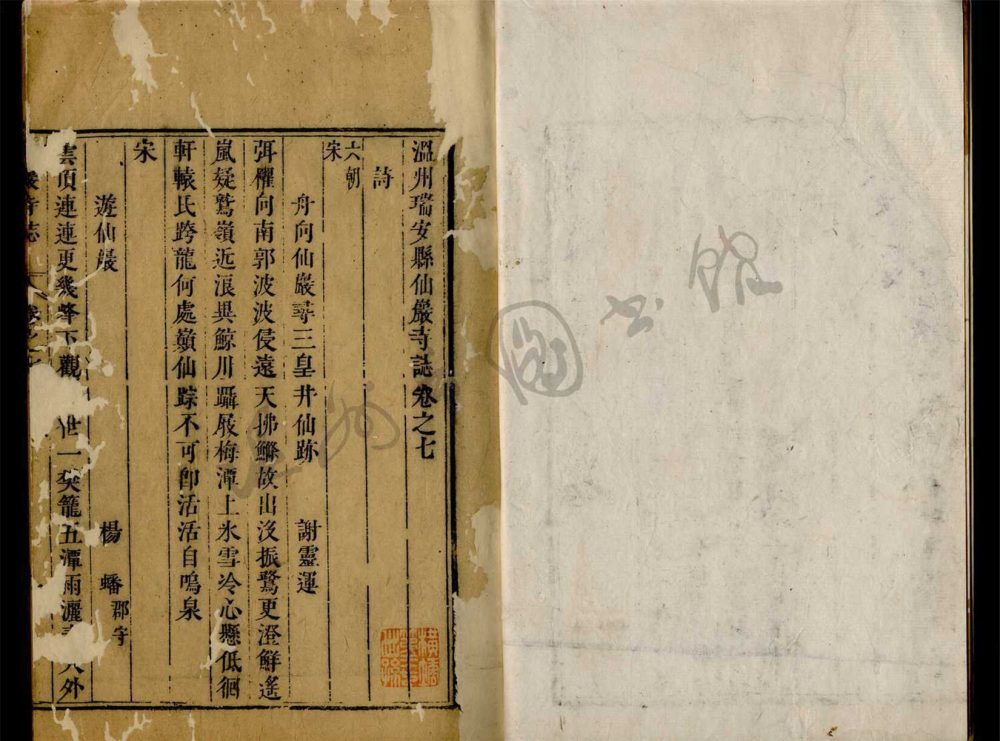 溫州瑞安縣仙巖寺誌卷之七
詩
六朝
宋
舟向仙巖尋三皇井仙跡 謝靈運
弭櫂向南郭波波侵遠天拂鯈故出沒振鷺更澄鮮遙
嵐疑鷲嶺近浪異鯨川躡屐梅潭上氷雪冷心懸低徊
軒轅氏跨龍何處巔仙踪不可卽活活自鳴泉
宋
遊仙巖 楊蟠郡守
雲頂連連更幾峰下觀 世一樊籠五潭雨灑 天外
巖寺志 卷之七
圖書館